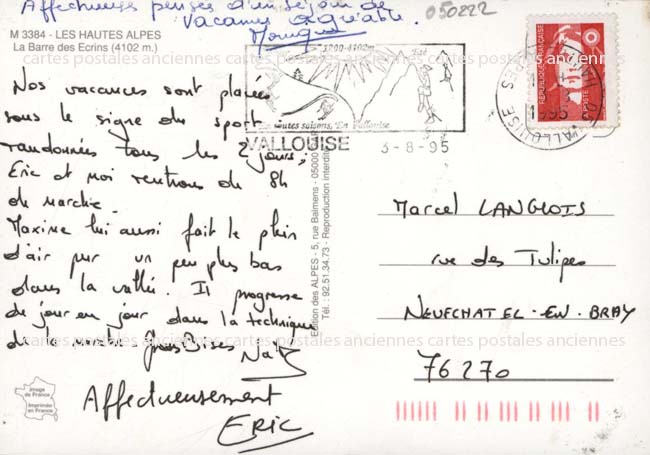 Affectueuses pensées d'un séjour de
Vacances agréable.
Monique
050222
M 3384 - LES HAUTES ALPES
La Barre des Ecrins (4102 m.)
cartes postales anciennes cartes postales anciennes cartes postales anciennes
Nos vacances sont placées
sous le signe du sport
randonnées tous les 2 jours,
Eric et moi rentrons de 8h
de marche.
Maxime lui aussi fait le plein
d'air pur un peu plus bas
dans la vallée. Il progresse
de jour en jour dans la technique
de la marche. Gros Bises
cartes postales anciennes cartes postales anciennes cartes postales anciennes
Affectueusement
ERIC
Image
de France
Imprimée
en France
Edition des ALPES - 5, rue Balmens - 05000
Tél. : 92.51.34.73 - Reproduction interdite
1200-4102m
Eté
Toutes saisons, En Vallouise
VALLOUISE
3-8-95
REPUBLIQUE FRANÇAISE
POSTES
VALLOUISE
ALPES
1995
Marcel LANGLOIS
rue des Tulipes
NEUFCHATEL-EN-BRAY
76270